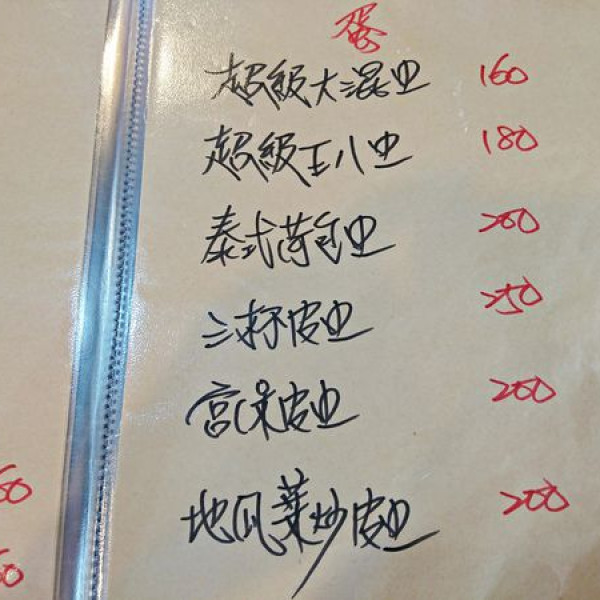 蛋
超級大混旦 160
超級王八旦 180
泰式荷包旦 200
三杯皮旦 250
宮保皮旦 200
地瓜葉炒皮旦 200